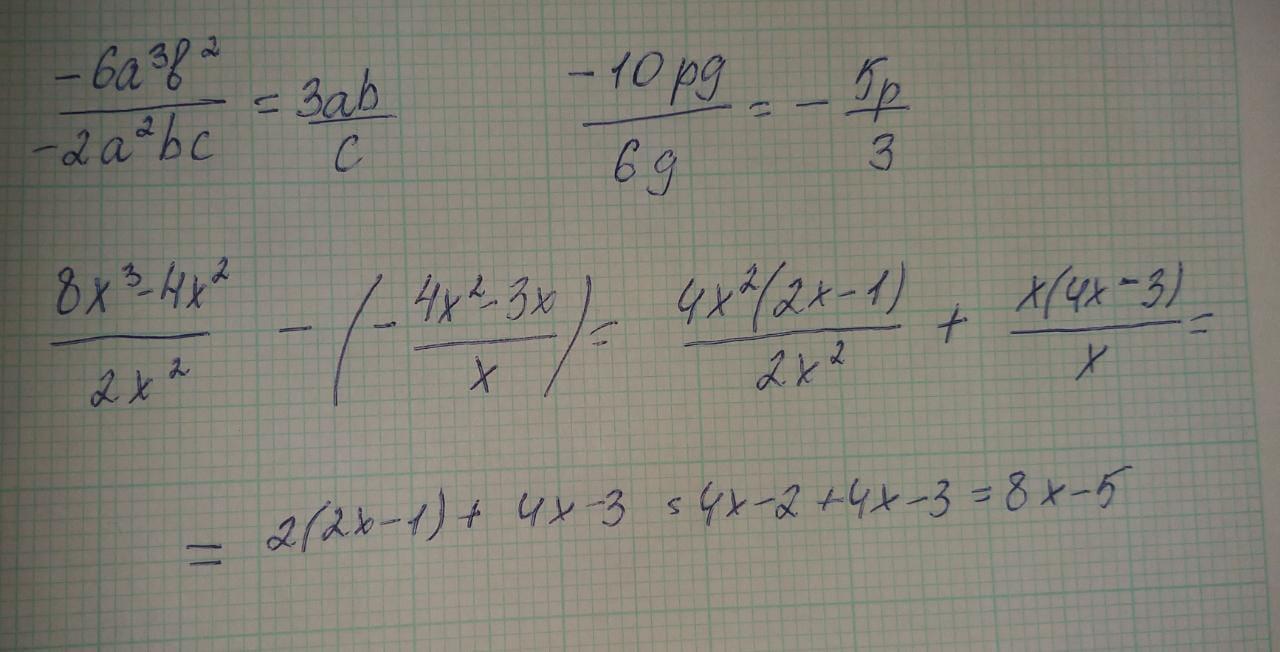 -6a³b² / -2a²bc = 3ab / c    -10pg / 6g = - 5p / 3
8x³-4x² / 2x² - (- 4x²-3x / x) = 4x²(2x-1) / 2x² + x(4x-3) / x =
= 2(2x-1)+ 4x-3 = 4x-2+4x-3=8x-5